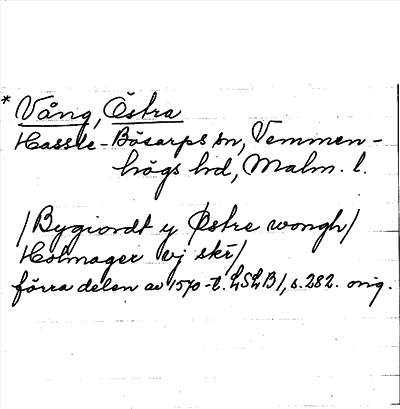 * Vång, Östra
Hassle-Bösarps sn, Vemmen-
högs hd, Malm. l.
/Bygiordt y Østre wongh/
Holmager vj skr/
förra delen av 1570-t. LSLB1, s. 282. orig.